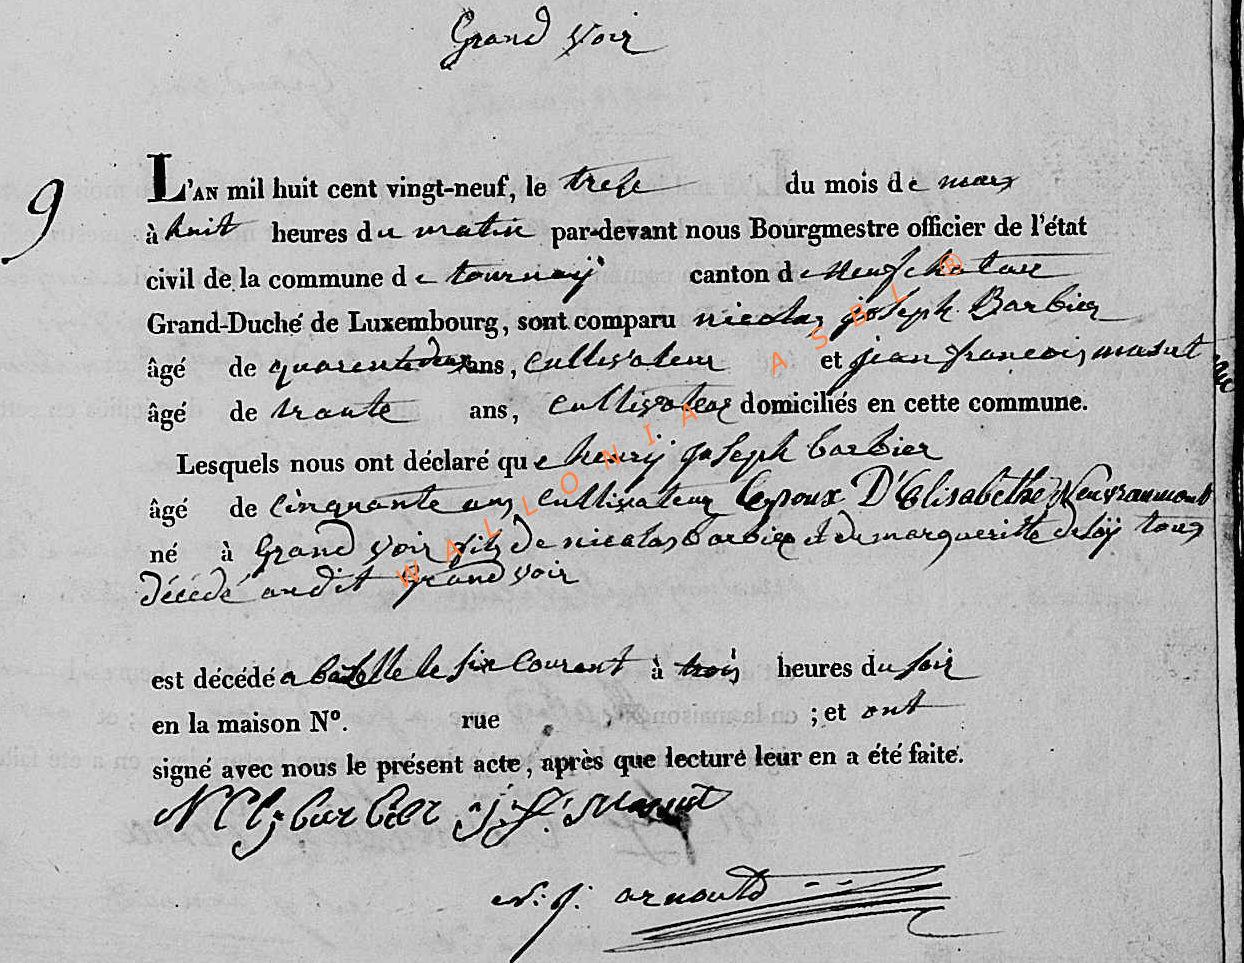 Grand voir
9
L'AN mil huit cent vingt-neuf, le trese du mois de mars
à huit heures du matin par-devant nous Bourgmestre officier de l'état
civil de la commune de tournaÿ canton de neufchatau
Grand-Duché de Luxembourg, sont comparu nicolas joseph Barbier
âgé de quarente deux ans, cultivateur et jean francois masut
âgé de trante ans, cultivateur domiciliés en cette commune.
Lesquels nous ont déclaré que henrij joseph barbier
âgé de cinquante ans cultivateur Epoux D'Elisabethe Neuvraumont
né à Grand voir fils de nicolas barbier et de margueritte delöÿ tous
décédé audit grand voir
est décédé a le six courant à trois heures du soir
en la maison N°. rue ; et ont
signé avec nous le présent acte, après que lecture leur en a été faite.
barbier j. f. masut
n. j. arnould
WALLONIA ASBL ®